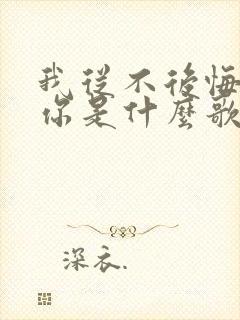 我從不後悔
你是什麼歌
深衣.